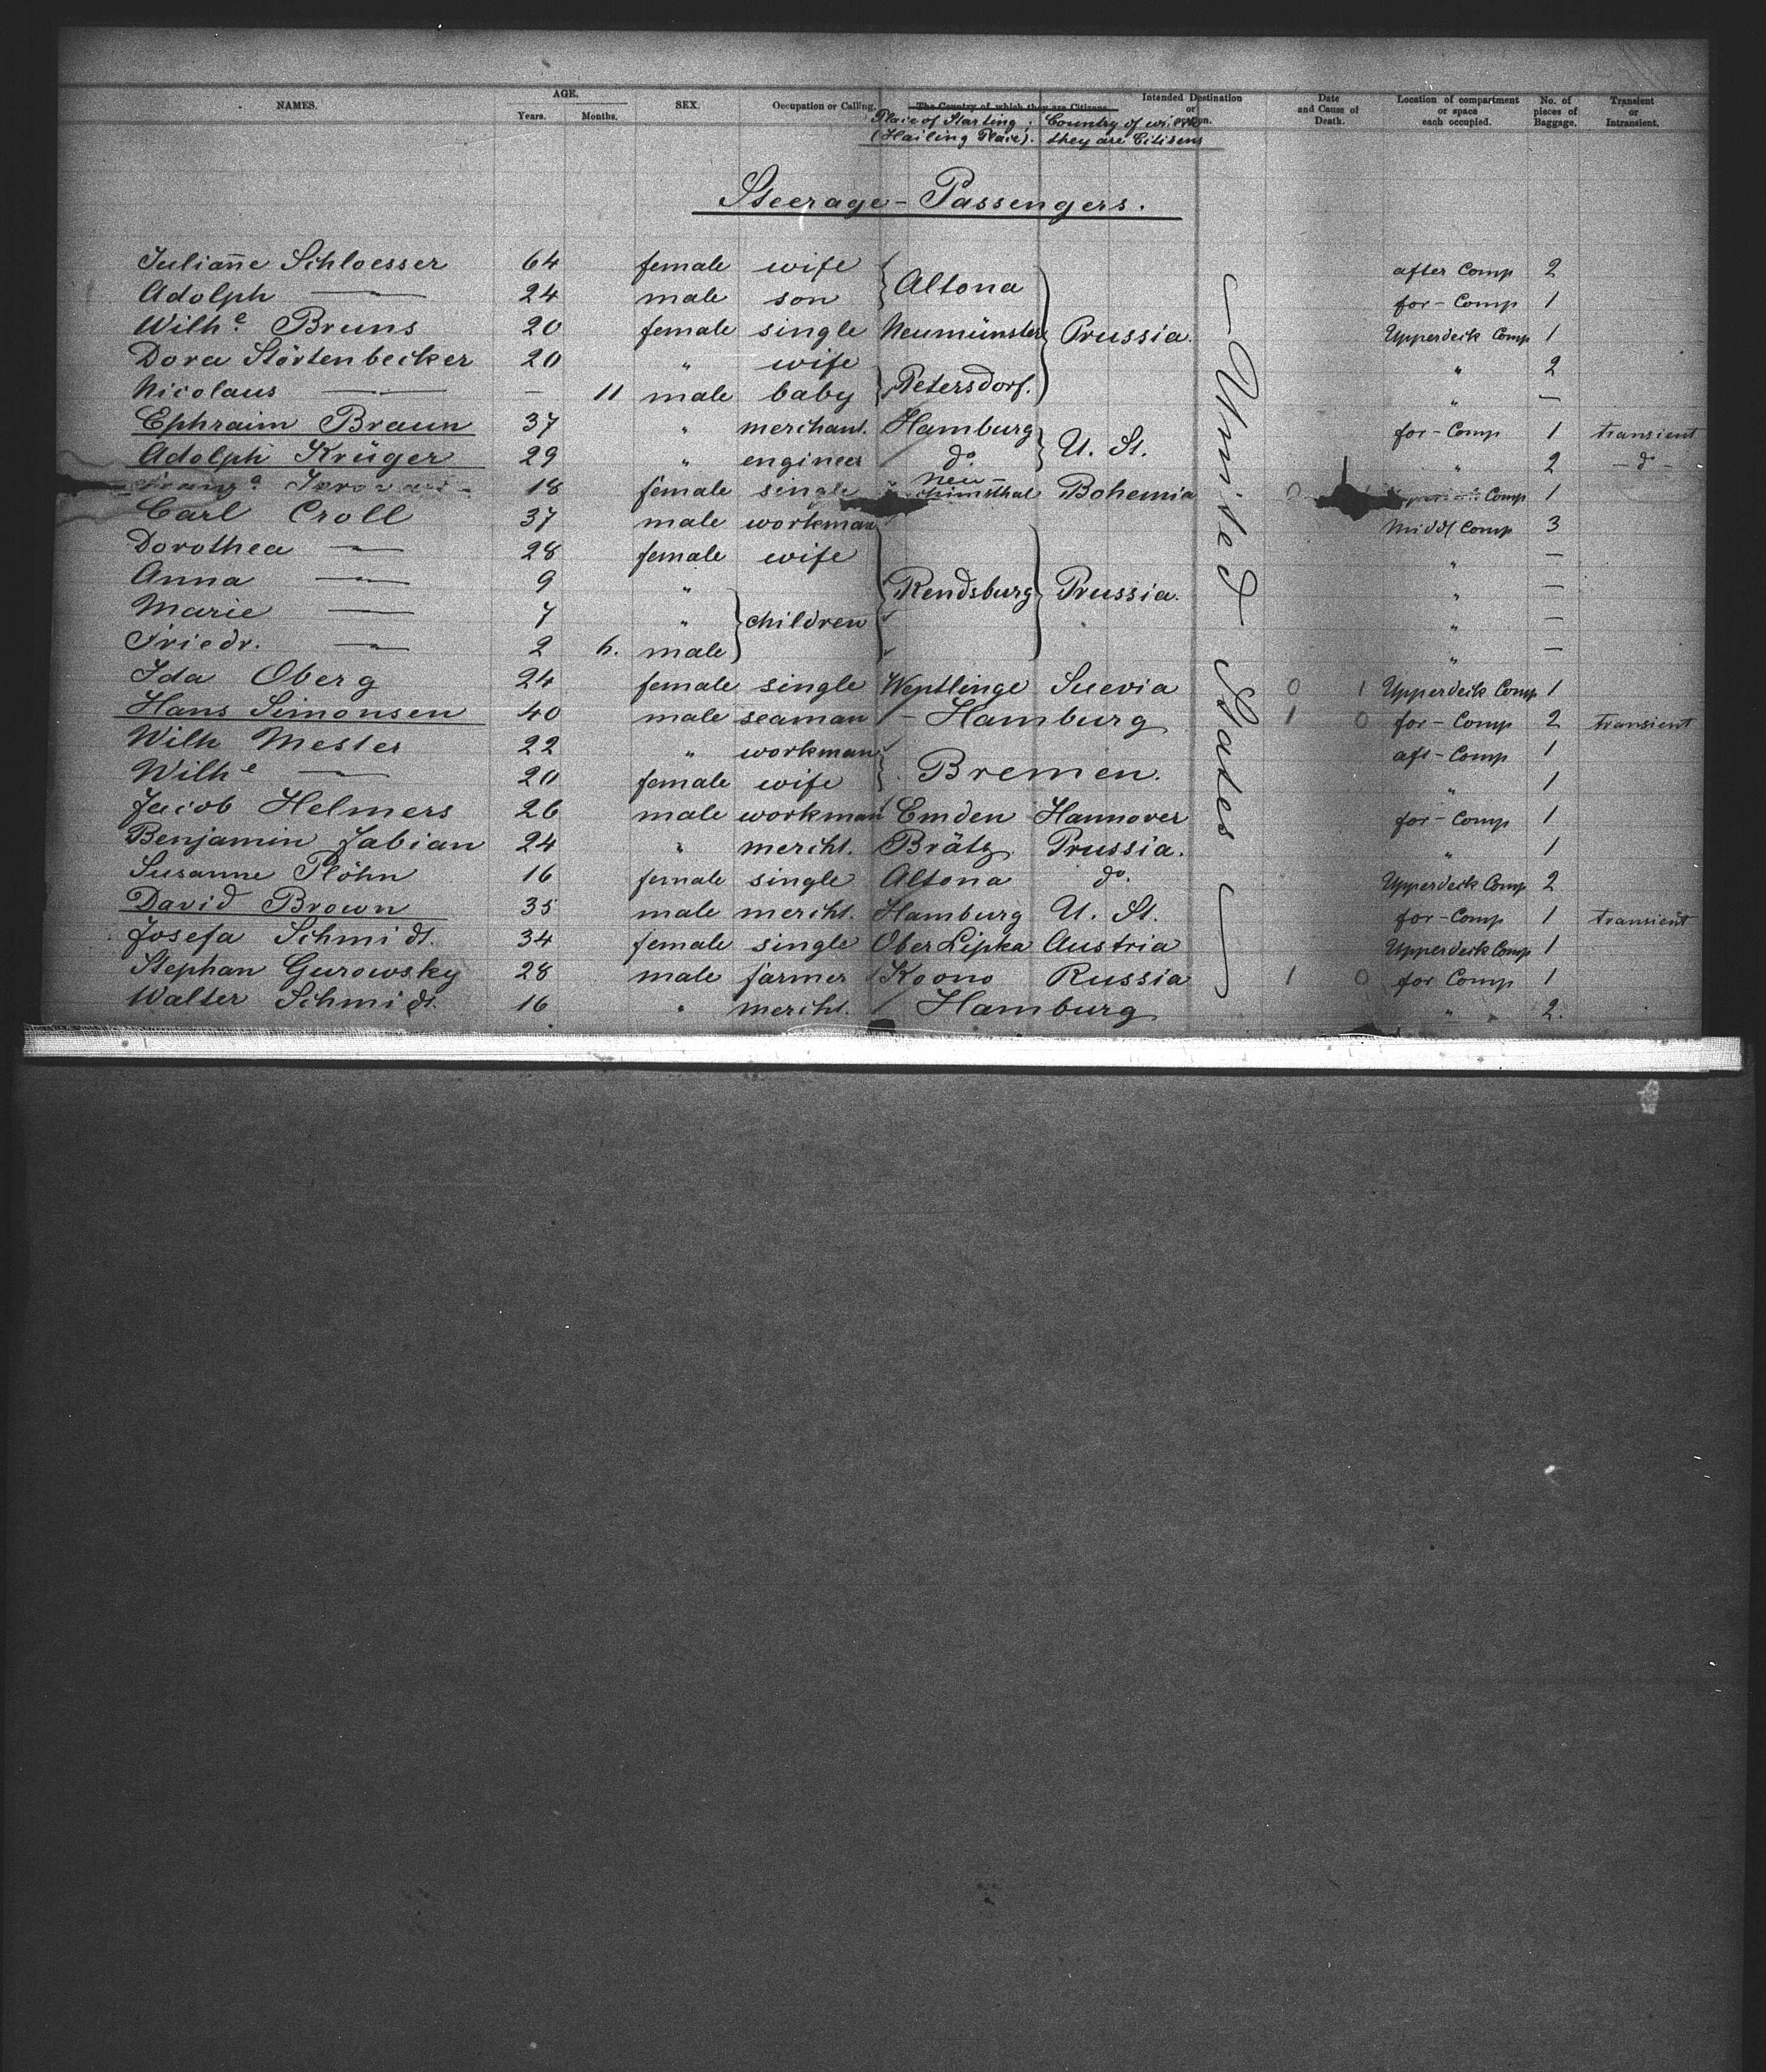 NAMES. AGE. Years. Months. SEX. Occupation or Calling. The Country of which they are Citizens. Intended Destination or Date and Cause of Death. Location of compartment or space each occupied. No. of pieces of Baggage. Transient or Intransient.
Place of Starting. (Hailing Place). Country of which they are Citizens
Steerage-Passengers.
Julian̄e Schloesser 64 female wife Altona Prussia. United States after Comp 2
Adolph — 24 male son for-Comp 1
Wilhe. Bruns 20 female single Neumünster Upperdeck Comp 1
Dora Störtenbecker 20 " wife Petersdorf. " 2
Nicolaus — – 11 male baby " –
Ephraim Braun 37 " merchant. Hamburg U. St. for-Comp 1 transient
Adolph Krüger 29 " engineer do. " 2 – do –
18 female single Neu- Bohemia 0 Comp 1
Carl Croll 37 male workman Rendsburg Prussia. Middl Comp 3
Dorothea — 28 female wife " –
Anna — 9 " children " –
Marie — 7 " " –
Friedr. — 2 6. male " –
Ida Oberg 24 female single Suevia 0 1 Upperdeck Comp 1
Hans Simonsen 40 male seaman – Hamburg 1 0 for-Comp 2 transient
Wilh Mester 22 " workman Bremen. aft-Comp 1
Wilhe — 20 female wife " 1
Jacob Helmers 26 male workman Emden Hannover for-Comp 1
Benjamin Fabian 24 " mercht. Brätz Prussia. " 1
Susanne Plöhn 16 female single Altona do. Upperdeck Comp 2
David Brown 35 male mercht. Hamburg U. St. for-Comp 1 transient
Josefa Schmidt. 34 female single Ober Lipka Austria Upperdeck Comp 1
Stephan Gurowsky 28 male farmer Koono Russia 1 0 for Comp 1
Walter Schmidt. 16 " mercht. Hamburg " 2.